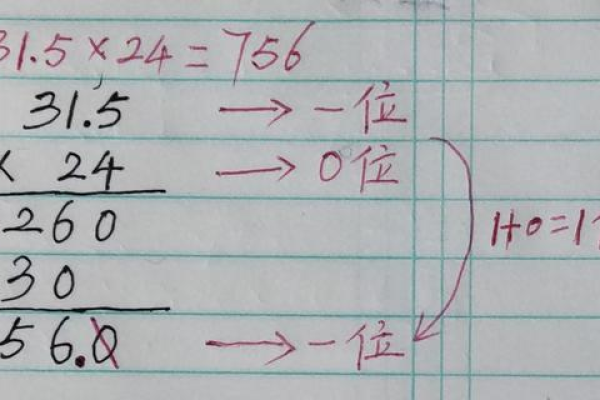 31.5×24=756
31.5 → 一位
× 24 → 0位
260
30
1+0=1
56.0 → 一位